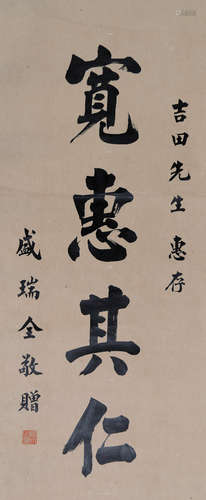 吉田先生惠存
寬惠其仁
盛瑞全敬贈